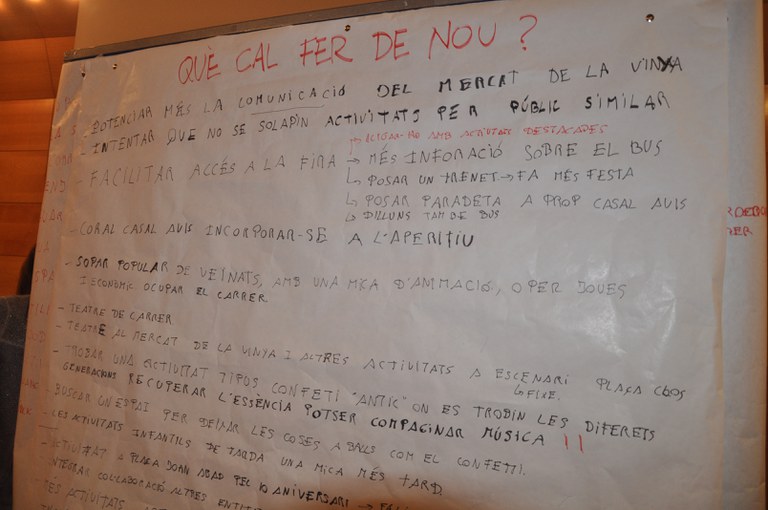 QUÈ CAL FER DE NOU ?
- POTENCIAR MÉS LA COMUNICACIÓ DEL MERCAT DE LA VINYA
- INTENTAR QUE NO SE SOLAPIN ACTIVITATS PER PÚBLIC SIMILAR
AMB ACTIVITATS DESTACADES
- FACILITAR ACCÉS A LA FIRA → MÉS INFORACIÓ SOBRE EL BUS
↳ POSAR UN TRENET → FA MÉS FESTA
↳ POSAR PARADETA A PROP CASAL AVIS
↳ DILLUNS TAMBE BUS
- CORAL CASAL AVIS INCORPORAR-SE A L'APERITIU
- SOPAR POPULAR DE VEINATS, AMB UNA MICA D'ANIMACIÓ, O PER JOVES
I ECONÒMIC OCUPAR EL CARRER
- TEATRE DE CARRER
- TEATRE AL MERCAT DE LA VINYA I ALTRES ACTIVITATS A ESCENARI PLAÇA CDOS
- TROBAR UNA ACTIVITAT TIPUS CONFETI "ANTIC" ON ES TROBIN LES DIFERETS
GENERACIONS RECUPERAR L'ESSÈNCIA POTSER COMPAGINAR MÚSICA !!
- BUSCAR UN ESPAI PER DEIXAR LES COSES A BALLS COM EL CONFETTI.
- LES ACTIVITATS INFANTILS DE TARDA UNA MICA MÉS TARD.
- ACTIVITAT A PLAÇA JOAN ABAD PEL 10 ANIVERSARI →
INTEGRAR COL·LABORACIÓ ALTRES
MÉS ACTIVITATS